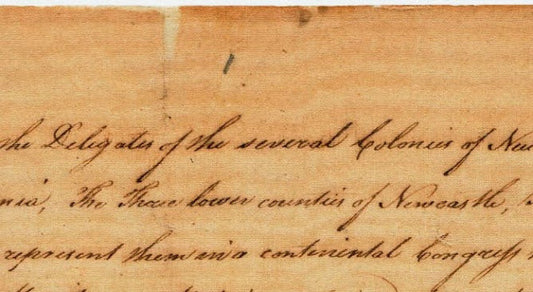 the Delegates of the several Colonies of New
nia, The Three lower counties of Newcastle,
represent them in a continental Congress